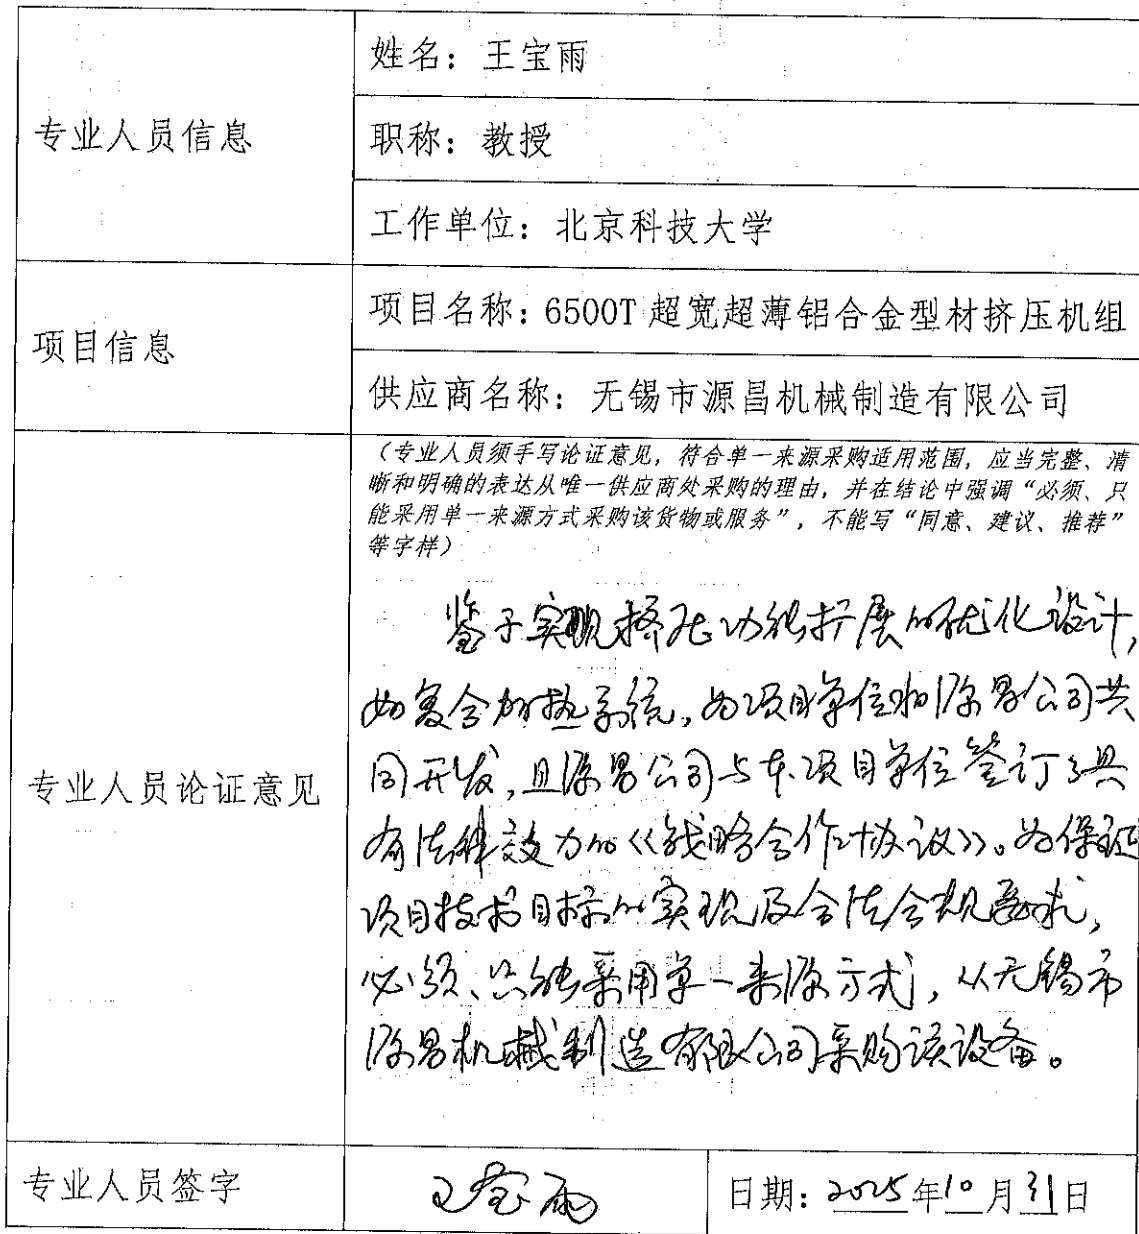 专业人员信息
姓名：王宝雨
职称：教授
工作单位：北京科技大学
项目信息
项目名称：6500T超宽超薄铝合金型材挤压机组
供应商名称：无锡市源昌机械制造有限公司
专业人员论证意见
（专业人员须手写论证意见，符合单一来源采购适用范围，应当完整、清
晰和明确的表达从唯一供应商处采购的理由，并在结论中强调“必须、只
能采用单一来源方式采购该货物或服务”，不能写“同意、建议、推荐”
等字样）
鉴于实现挤压功能扩展的优化设计，
如复合加热系统，为项目单位和源昌公司共
同开发，且源昌公司与本项目单位签订了具
有法律效力的《战略合作协议》。为保证
项目技术目标的实现及合法合规要求，
必须、只能采用单一来源方式，从无锡市
源昌机械制造有限公司采购该设备。
专业人员签字
王宝雨
日期：2025年10月31日